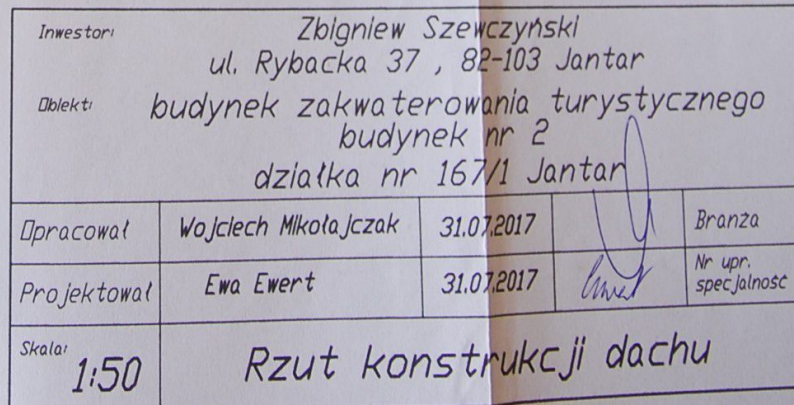 Inwestor: Zbigniew Szewczyński
ul. Rybacka 37 , 82-103 Jantar
Obiekt: budynek zakwaterowania turystycznego
budynek nr 2
działka nr 167/1 Jantar
Opracował Wojciech Mikołajczak 31.07.2017 Branża
Projektował Ewa Ewert 31.07.2017 Ewert Nr upr.
specjalność
Skala: 1:50 Rzut konstrukcji dachu